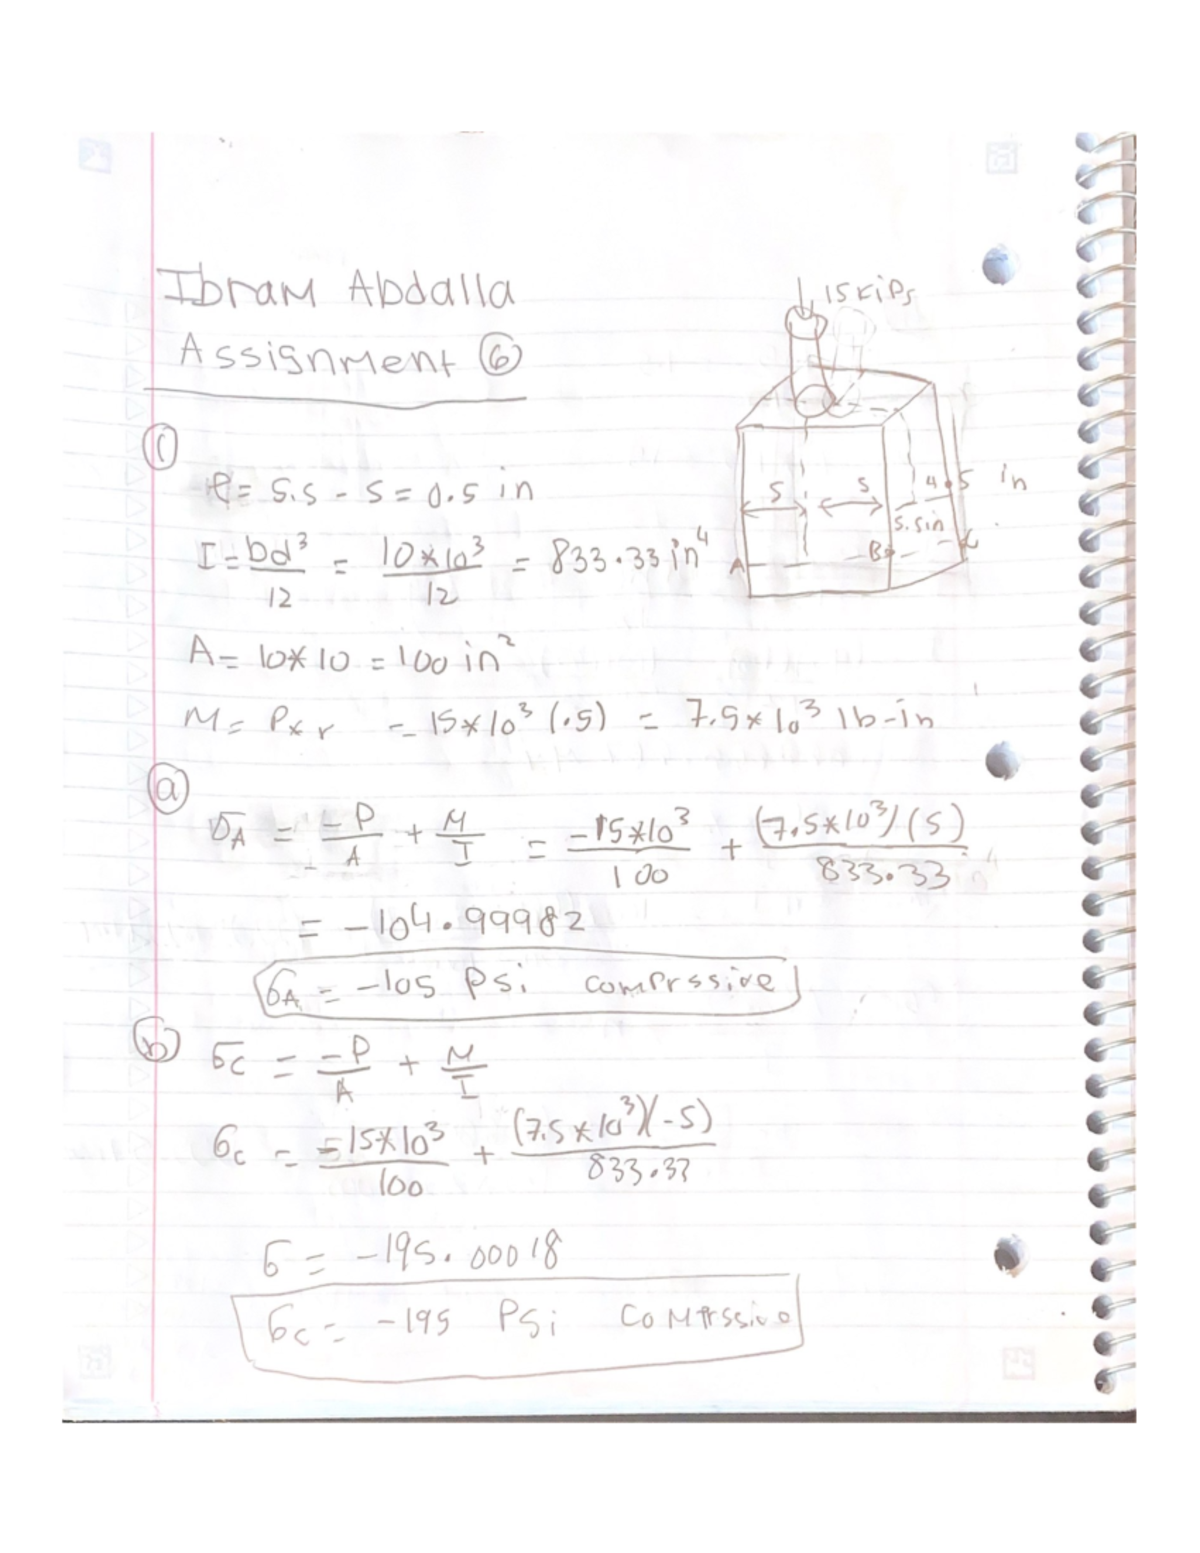 Ibram Abdalla
Assignment ⑥
15 kips
①
5 5 4.5 in
5.5in
A B C
e = 5.5 - 5 = 0.5 in
I = bd³/12 = 10*10³/12 = 833.33 in⁴
A = 10*10 = 100 in²
M = P*r = 15*10³ (.5) = 7.5*10³ lb-in
ⓐ
σA = -P/A + M/I = -15*10³/100 + (7.5*10³)(5)/833.33
= -104.99982
σA = -105 Psi comprssive
ⓑ σC = -P/A + M/I
σC = -15*10³/100 + (7.5*10³)(-5)/833.33
σ = -195.00018
σC = -195 Psi Comprssive